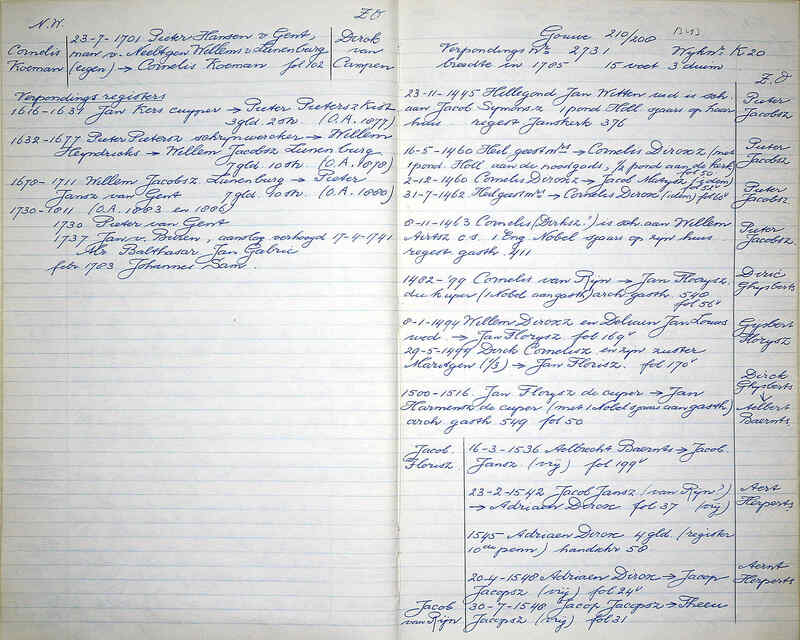 N.W.
Z.O
Cornelis
Koeman
23-7-1701 Pieter Hansen v Gent,
man v. Neeltgen Willems v Lunenburg
(eigen) → Cornelis Koeman fol 102
Dirck
van
Campen
Verpondings registers
1616-1631 Jan Kers cuyper → Pieter Pietersz
3gld. 2 sth. (O.A. 1877)
1632-1677 Pieter Pietersz schrijnwercker → Willem
Heyndricks → Willem Jacobsz Lunenburg
7gld 10 sth. (O.A. 1878)
1678-1711 Willem Jacobsz Lunenburg → Pieter
Jansz van Gent 7gld. 10 sth. (O.A. 1880)
1730-1811 (O.A. 1883 en 1886)
1730 Pieter van Gent
1737 Jan v. Buren, aanslag verhoogd 17-4-1741
Mr. Balthasar Jan Gabrie
febr 1783 Johannes Dam.
Gouwe 210/208
Verpondings No 2731 Wijk no. K 20
breedte in 1785 15 voet 3 duim
Z.O
23-11-1445 Hillegond Jan Witten wed is sch.
aan Jacob Symonsz 1 pond Holl sjaars op haar
huis regest Janskerk 376
Pieter
Jacobsz
16-5-1460 Heil. geest mrs → Cornelis Dircxz (met
1 pond. Holl aan de noodgods, ½ pond aan de kerk)
fol 50
2-12-1460 Cornelis Dircxz → Jacob
31-7-1462 Heilgeest mrs → Cornelis Dircx
Pieter
Jacobsz
Pieter
Jacobsz
8-11-1463 Cornelis (Dirksz.?) is sch. aan Willem
Aertsz c.s. 1 Eng. Nobel sjaars op zijn huis
regest gasth. 411
Pieter
Jacobsz.
1482-'99 Cornelis van Rijn → Jan Florysz.
die kuper (1 Nobel aan gasth) arch. gasth. 540
fol 56v
Diric
Ghysberts
8-1-1494 Willem Dircxz en Dobraen Jan Louws
wed → Jan Florysz fol 169v
29-5-1499 Dirck Cornelisz en zyn zuster
Maritgen (1/3) → Jan Florisz. fol 170v
Gysbert
Florysz
1500-1516. Jan Florysz de cuyper → Jan
Harmensz de cuper (met 1 Nobel sjaars aan gasth)
arch. gasth 549 fol 50
Dirck
Ghysberts
↓
Aelbert
Baernts.
Jacob.
Florisz
16-3-1536 Aelbrecht Baernts → Jacob.
Jansz. (vrij) fol 199v
23-2-1542 Jacob Jansz (van Rijn?)
→ Adriaen Dircx fol 37 (vrij)
Aert
Herperts.
1545 Adriaen Dircx 4 gld. (register
10de penn) handschr 58
20-4-1548 Adriaen Dircx → Jacop
Jacopsz (vrij) fol 24v
Aernt
Herperts
Jacob
van Rijn
30-7-1548 Jacop Jacopsz → Theeu
Jacopsz (vrij) fol 31